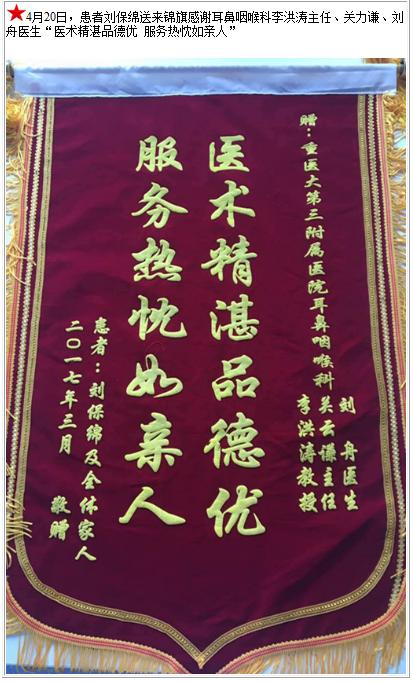 ★4月20日，患者刘保绵送来锦旗感谢耳鼻咽喉科李洪涛主任、关力谦、刘
舟医生“医术精湛品德优 服务热忱如亲人”
赠：重医大第三附属医院耳鼻咽喉科
刘舟医生
关云谦主任
李洪涛教授
医术精湛品德优
服务热忱如亲人
患者：刘保绵及全体家人
二〇一七年三月
敬赠